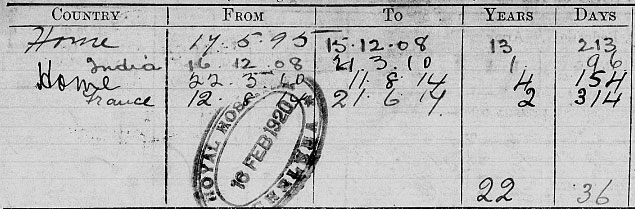 COUNTRY FROM TO YEARS DAYS
Home 17.5.95 15.12.08 13 213
India 16.12.08 21.3.10 1 96
Home 22.3.10 11.8.14 4 154
France 12. 8 14 21.6.17 2 314
22 36
ROYAL HOSP. CHELSEA
16 FEB 1920